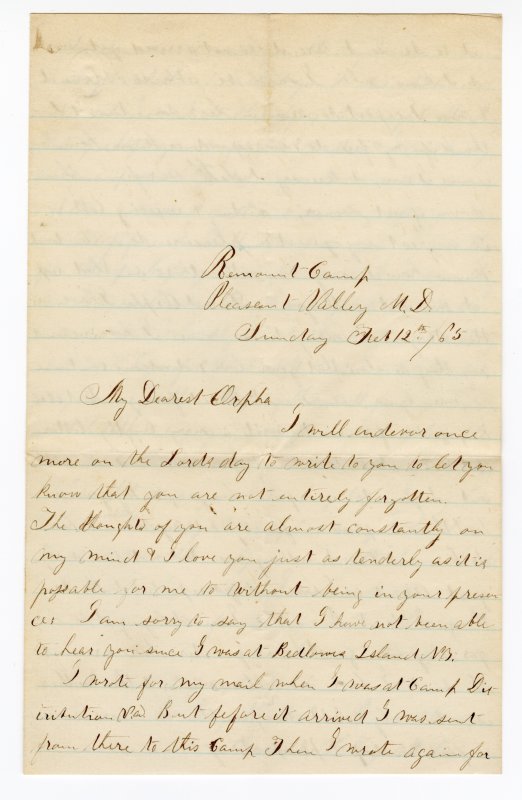 Remount Camp
Pleasant Valley M.D.
Sunday Feb 12th/65
My Dearest Orpha
I will endevor once
more on the Lords day to write to you to let you
know that you are not entirely forgotten.
The thoughts of you are almost constantly on
my mind & I love you just as tenderly as it is
possable for me to without being in your presen
ces I am sorry to say that I have not been able
to hear you since I was at Bedlows Island NY.
I wrote for my mail when I was at Camp Dis
tribution Va But before it arrived I was sent
from there to this Camp Then I wrote again for